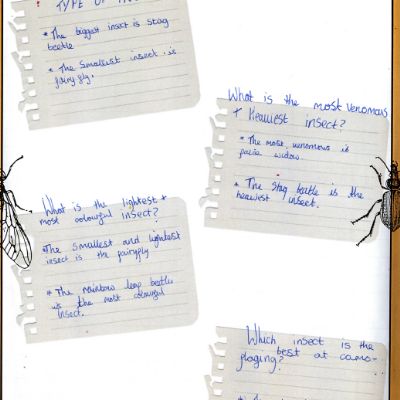 TYPE OF
* The biggest insect is stag
beetle
* The Smallest insect is
fairy fly.
What is the most venomous
+ Heaviest insect?
* The most venomous is
widow
* The Stag beetle is the
heaviest insect.
What is the lightest +
most colourful insect?
* The smallest and lightest
insect is the fairyfly
* The rainbow leap beetle
is the most colourful
Insect.
Which insect is the
best at camo-
flaging?